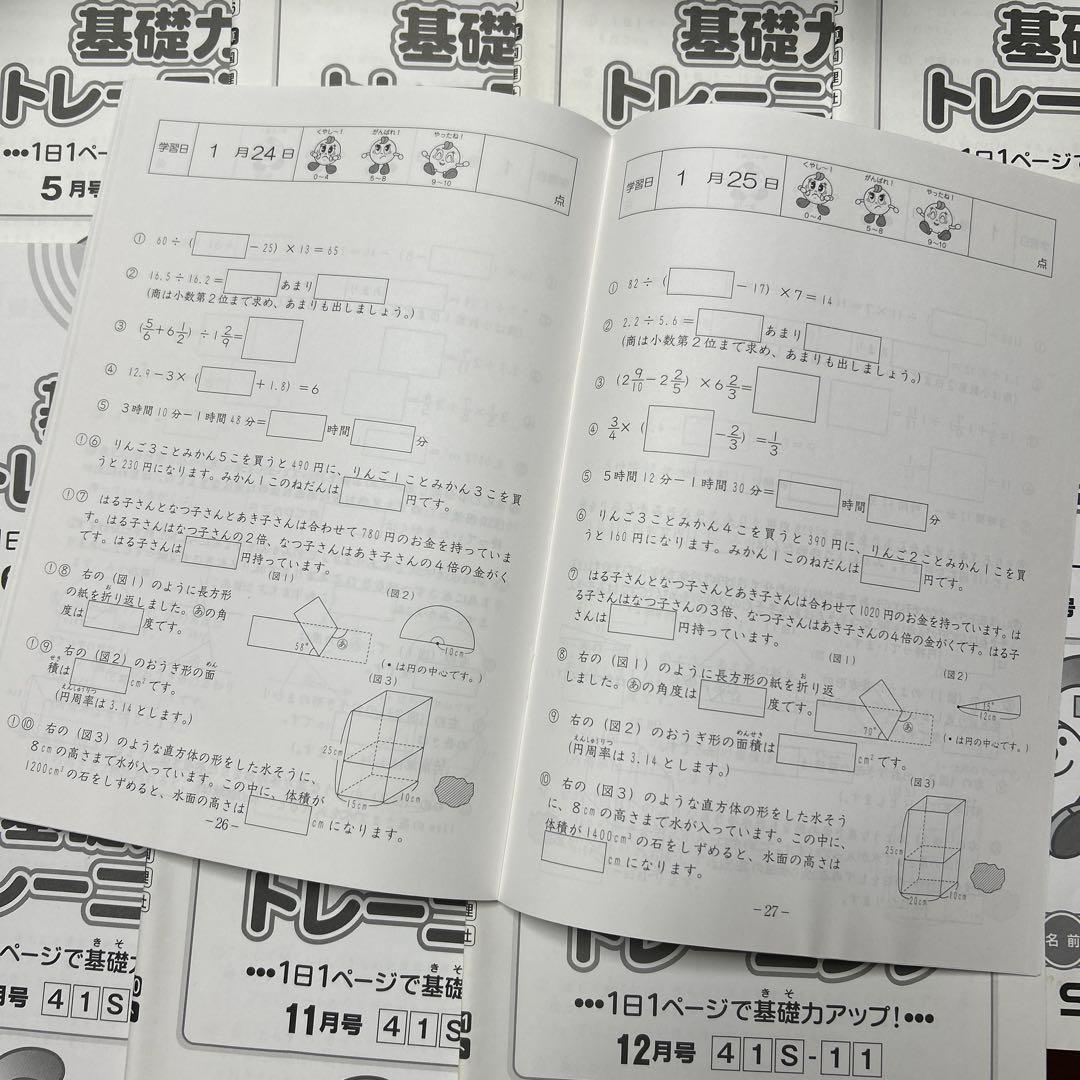 基礎力
トレーニ
•••1日1ページ
5月号
基礎
トレー
基礎力
トレーニ
基礎
トレーニ
1日1ページで
学習日 1月24日
くやし〜！ がんばれ！ やったね！
0〜4 5〜8 9〜10
点
① 60÷(□−25)×13＝65
② 16.5÷16.2＝□あまり□
(商は小数第2位まで求め、あまりも出しましょう。)
③ (5/6＋6 1/2)÷1 2/9＝□
④ 12.9−3×(□＋1.8)＝6
⑤ 3時間10分−1時間48分＝□時間□分
①⑥ りんご3ことみかん5こを買うと490円に、りんご1ことみかん3こを買
うと230円になります。みかん1このねだんは□円です。
①⑦ はる子さんとなつ子さんとあき子さんは合わせて780円のお金を持っていま
す。はる子さんはなつ子さんの2倍、なつ子さんはあき子さんの4倍の金がく
です。はる子さんは□円持っています。
①⑧ 右の(図1)のように長方形
の紙を折り返しました。あの角
度は□度です。
(図1)
58°
あ
(図2)
10cm
(•は円の中心です。)
①⑨ 右の(図2)のおうぎ形の面
積は□cm²です。
(円周率は3.14とします。)
(図3)
25cm
15cm
10cm
①⑩ 右の(図3)のような直方体の形をした水そうに、
8cmの高さまで水が入っています。この中に、体積が
1200cm³の石をしずめると、水面の高さは□cmになります。
−26−
学習日 1月25日
くやし〜！ がんばれ！ やったね！
0〜4 5〜8 9〜10
点
① 82÷(□−17)×7＝14
② 2.2÷5.6＝□あまり□
(商は小数第2位まで求め、あまりも出しましょう。)
③ (2 9/10−2 2/5)×6 2/3＝□
④ 3/4×(□−2/3)＝1/3
⑤ 5時間12分−1時間30分＝□時間□分
⑥ りんご3ことみかん4こを買うと390円に、りんご2ことみかん1こを買
うと160円になります。みかん1このねだんは□円です。
⑦ はる子さんとなつ子さんとあき子さんは合わせて1020円のお金を持っています。は
る子さんはなつ子さんの3倍、なつ子さんはあき子さんの4倍の金がくです。はる子
さんは□円持っています。
⑧ 右の(図1)のように長方形の紙を折り返
しました。あの角度は□度です。
(図1)
70°
あ
(図2)
15°
12cm
(•は円の中心です。)
⑨ 右の(図2)のおうぎ形の面積は□cm²です。
(円周率は3.14とします。)
(図3)
25cm
20cm
10cm
⑩ 右の(図3)のような直方体の形をした水そう
に、8cmの高さまで水が入っています。この中に、
体積が1400cm³の石をしずめると、水面の高さは
□cmになります。
−27−
トレーニ
ページで基礎力
月号 41S
トレーニ
•••1日1ページで基礎
11月号 41S
トレーニング
•••1日1ページで基礎力アップ！•••
12月号 41S-11
名前